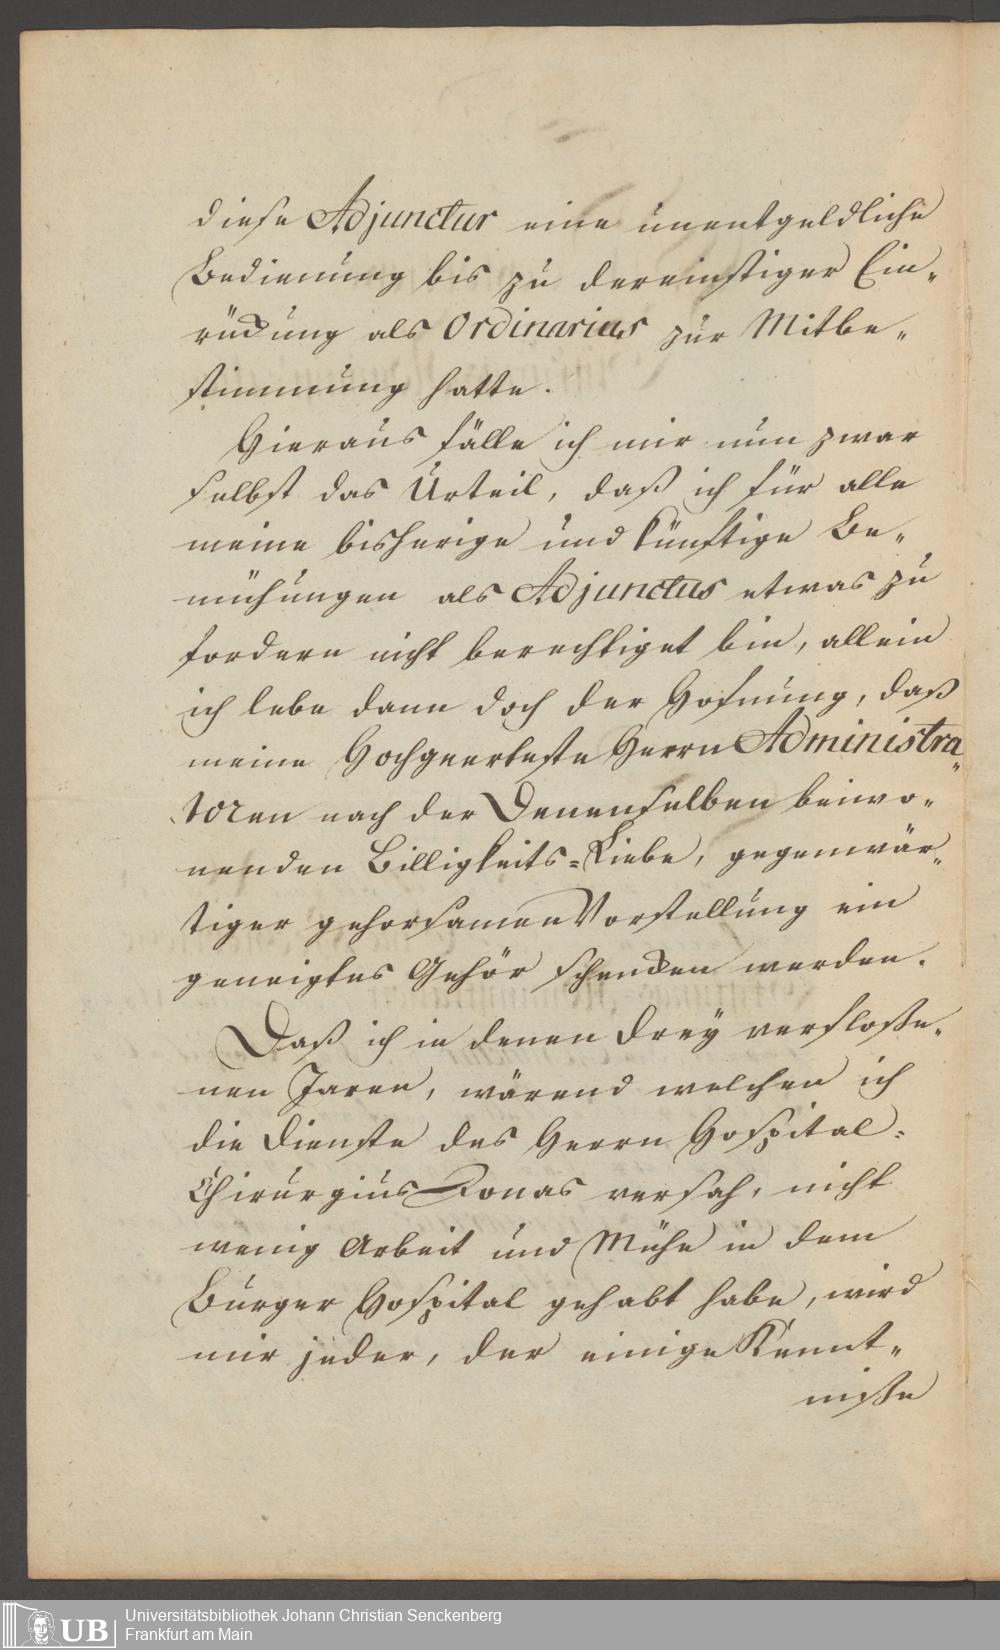 diese Adjunctur eine unentgeldliche
Bedienung bis zu dereinstiger Ein„
rückung als Ordinarius zur Mitbe„
stimmung hatte.
Hieraus fälle ich mir nun zwar
selbst das Urteil, daß ich für alle
meine bisherige und künftige Be„
mühungen als Adjunctus etwas zu
fordern nicht berechtiget bin, allein
ich lebe dann doch der Hofnung, daß
meine Hochgeerteste Herrn Administra„
toren nach der Denenselben beiwo„
nenden Billigkeits=Liebe, gegenwär„
tiger gehorsamen Vorstellung ein
geneigtes Gehör schencken werden.
Daß ich in denen drey verfloße„
nen Jaren, wärend welchen ich
die Dienste des Herrn Hospital=
Chirurgius Jonas versah, nicht
wenig Arbeit und Mühe in dem
Burger Hospital gehabt habe, wird
mir jeder, der einige Kennt„
niße
UB
Universitätsbibliothek Johann Christian Senckenberg
Frankfurt am Main